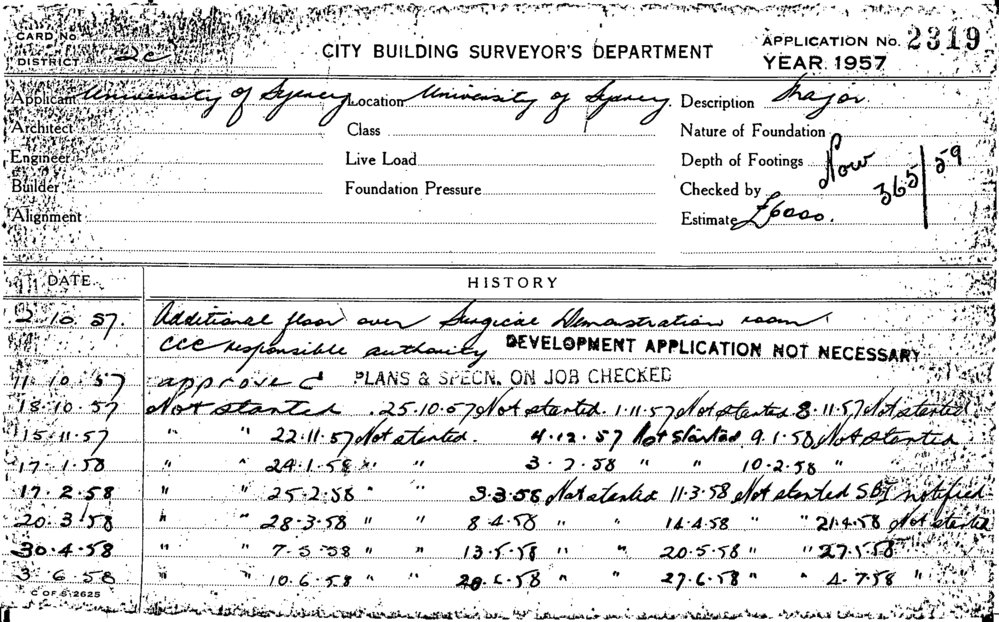 CARD No.
DISTRICT 2c
CITY BUILDING SURVEYOR'S DEPARTMENT
APPLICATION No. 2319
YEAR 1957
Applicant University of Sydney Location University of Sydney Description Major
Architect Class Nature of Foundation
Engineer Live Load Depth of Footings
Builder Foundation Pressure Checked by
Now 365/59
Alignment Estimate £6000.
DATE HISTORY
2.10.57. Additional floor over Surgical Demonstration room.
CCC responsible authority DEVELOPMENT APPLICATION NOT NECESSARY
11.10.57 approved PLANS & SPECN. ON JOB CHECKED
18.10.57 Not started .25.10.57 Not started. 1.11.57 Not started 8.11.57 Not started
15.11.57 " " 22.11.57 Not started. 4.12.57 Not started 9.1.58 Not started
17.1.58 " " 24.1.58 " " 3.2.58 " " 10.2.58 "
17.2.58 " " 25.2.58 " " 3.3.58 Not started 11.3.58 Not started SBI notified
20.3.58 " " 28.3.58 " " 8.4.58 " " 14.4.58 " " 21.4.58 Not started
30.4.58 " " 7.5.58 " " 13.5.58 " " 20.5.58 " " 27.5.58
3.6.58 " " 10.6.58 " " 20.6.58 " " 27.6.58 " " 4.7.58 "
C OF S 2625